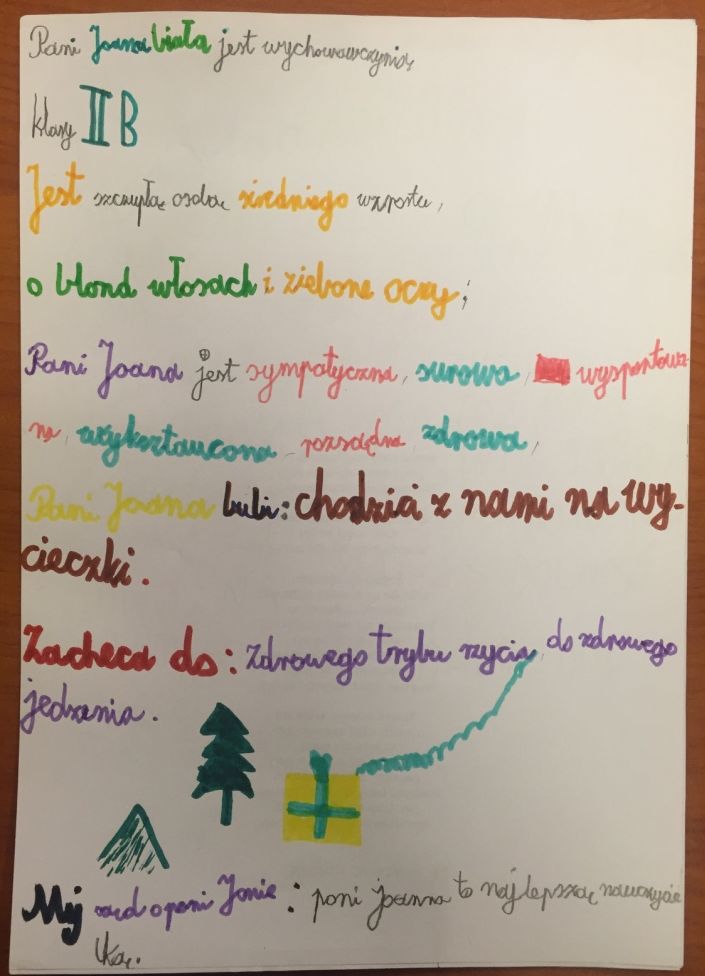 Pani Joana biała jest wychowawczynią
klasy II B
Jest szczupłą osobą siedniego wzrostu,
o blond włosach i zielone oczy;
Pani Joana jest sympatyczna, surowa, wysportowa-
na, wykształcona, rozsądna, zdrowa,
Pani Joana lubi: chodzić z nami na wy-
cieczki.
Zacheca do: zdrowego trybu rzycia, do zdrowego
jedzenia.
Mój o pani Joanie: pani joanna to najlepszą nauczycie
lką.